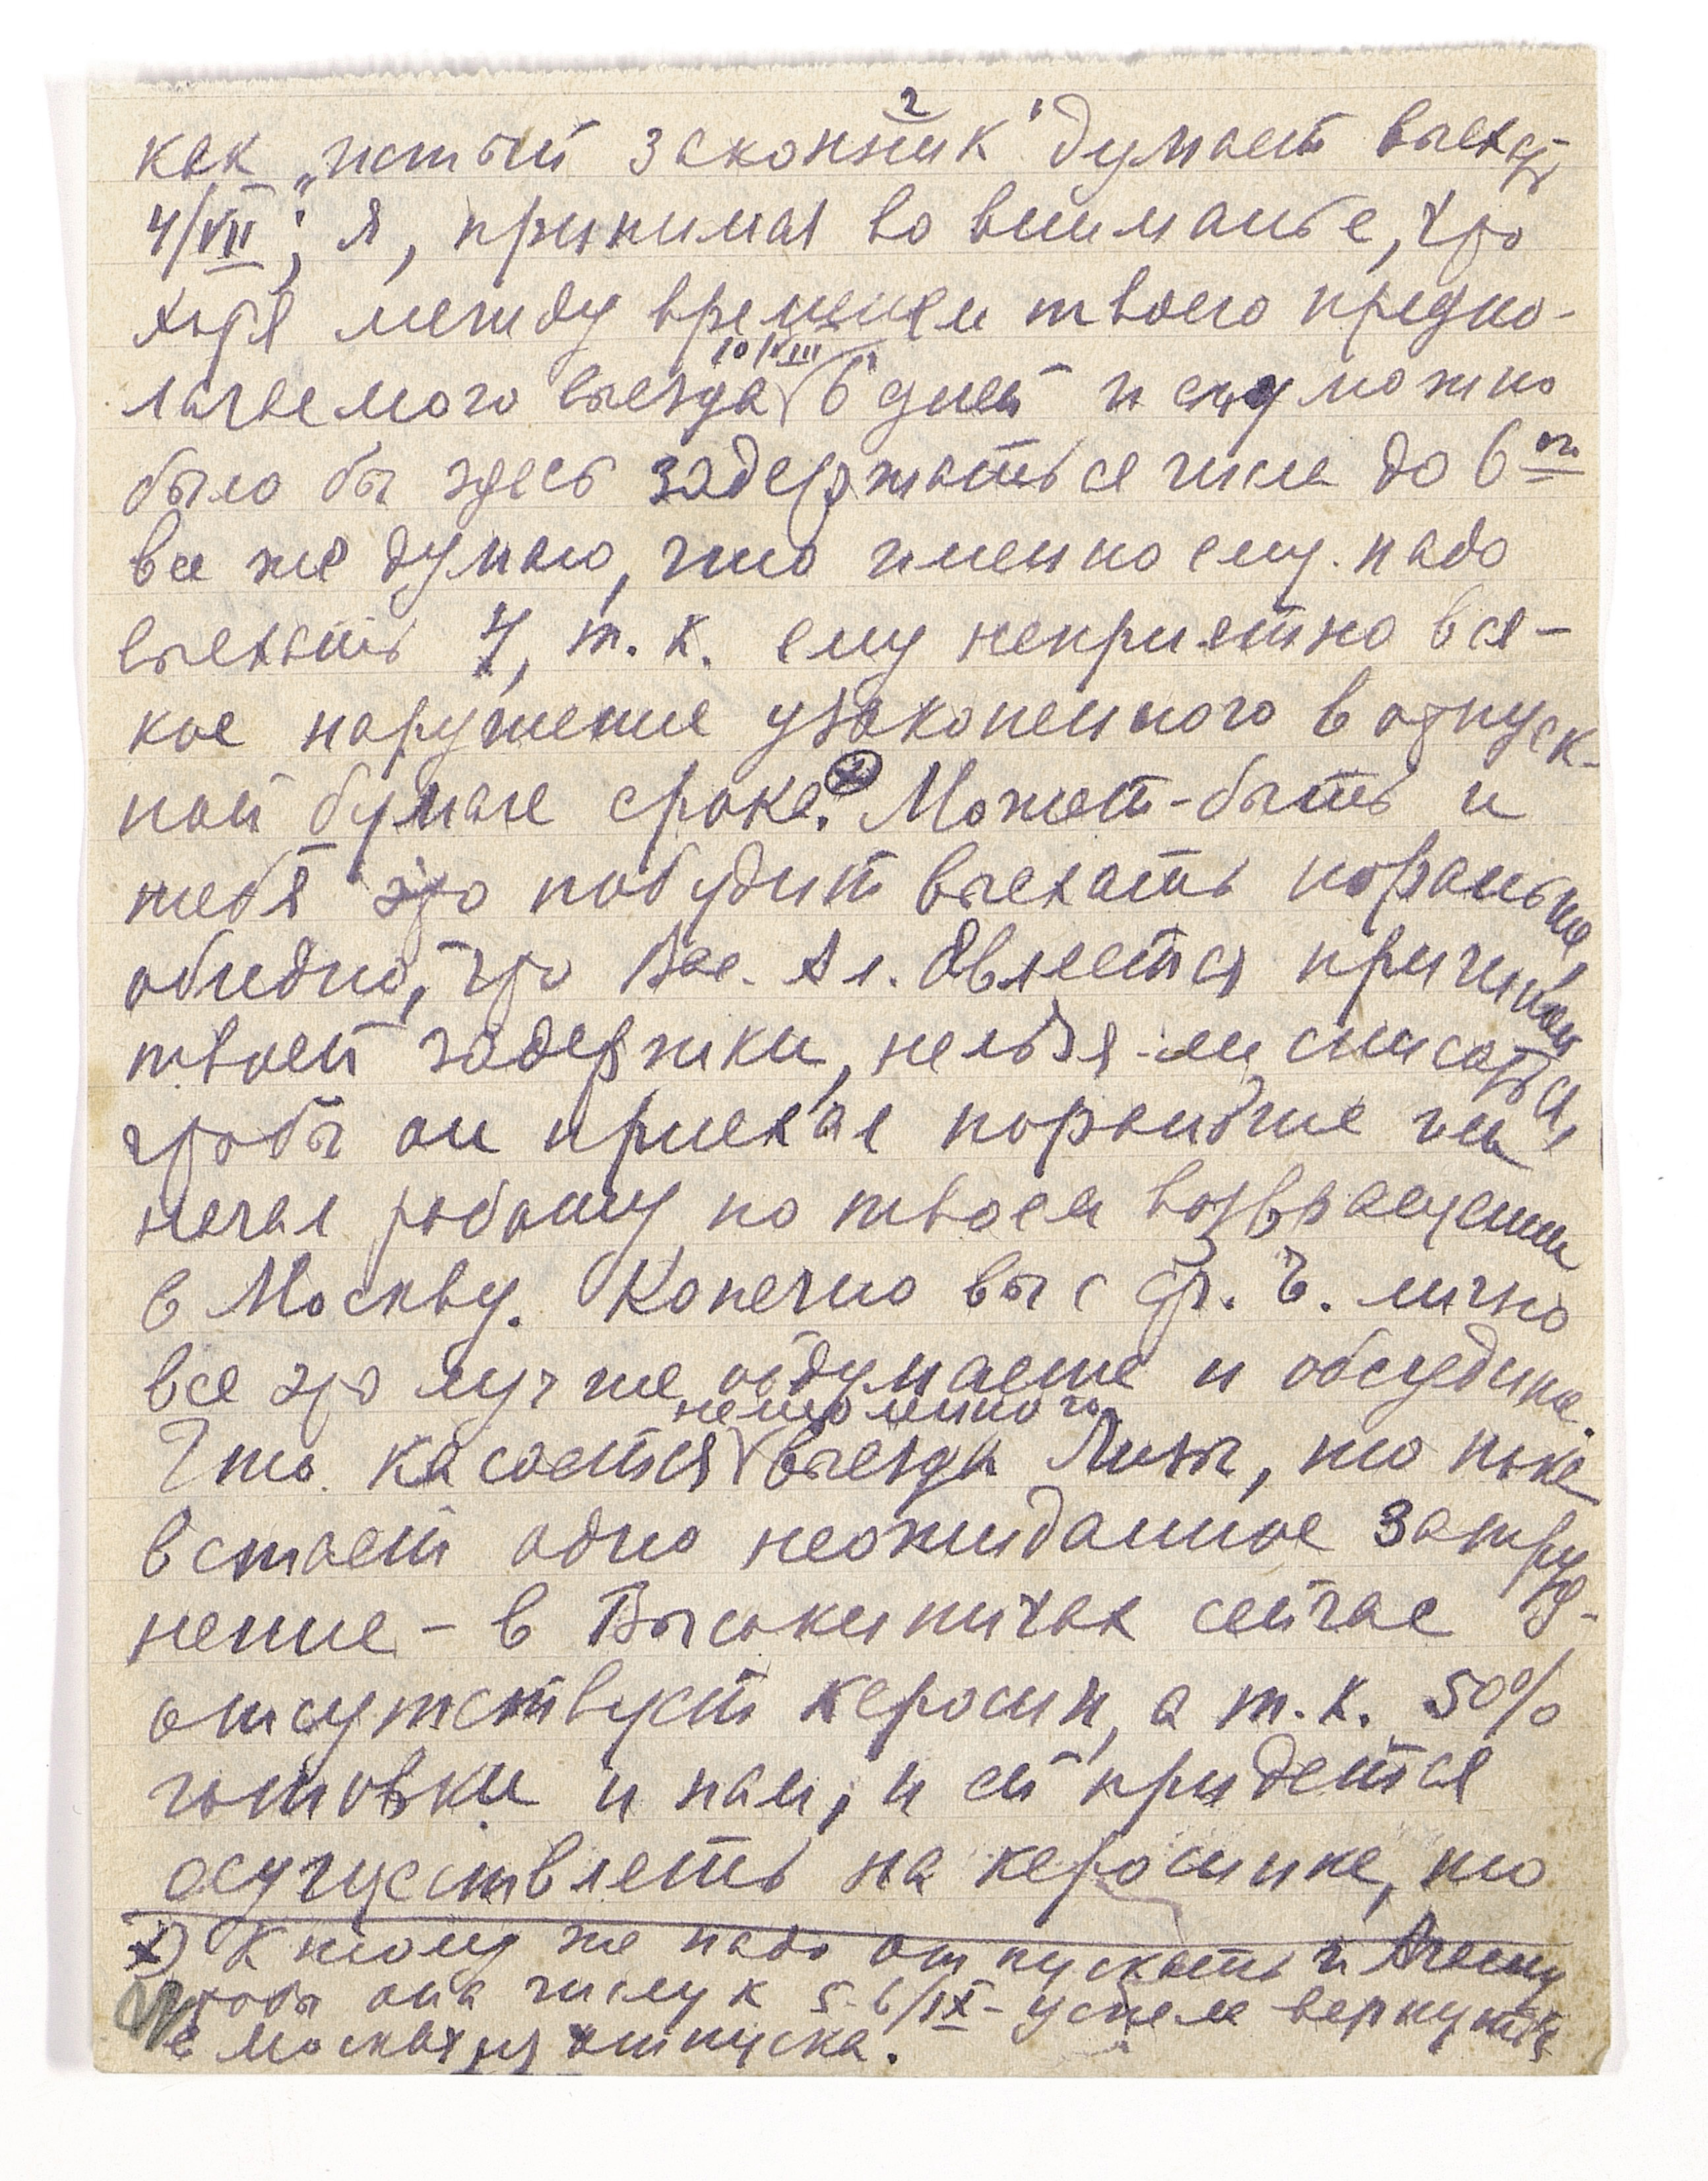 2
как „истый законник" думает выехать
4/VIII; я, принимая во вниманье, что
хотя между временем твоего предпо-
10/VIII
лагаемого выезда 6 дней и можно
было бы здесь задержаться числа до 6го
все же думаю, что именно ему надо
выехать 4, т. к. ему неприятно вся-
кое нарушение узаконенного в отпуск-
ной бумаге срока. Может-быть и
тебя это побудит выехать пораньше,
обидно, что Вас. Ал. является причиной
твоей задержки, нельзя-ли списаться,
чтобы он приехал пораньше или
начал работу по твоем возвращении
в Москву. Конечно вы с Фр. Ч. лично
все это лучше обдумаете и обсудите.
немолимого
Что касается выезда Лизы, то пока
встает одно неожиданное затруд-
нение – в Высокиничах сейчас
отсутствует керосин, а т. к. 50%
готовки и нам, и ей придется
осуществлять на керосинке, то
х) К тому же надо отпускать и Агашу
чтобы она числу к 5-6/IX – успела вернуться
в Москву из отпуска.